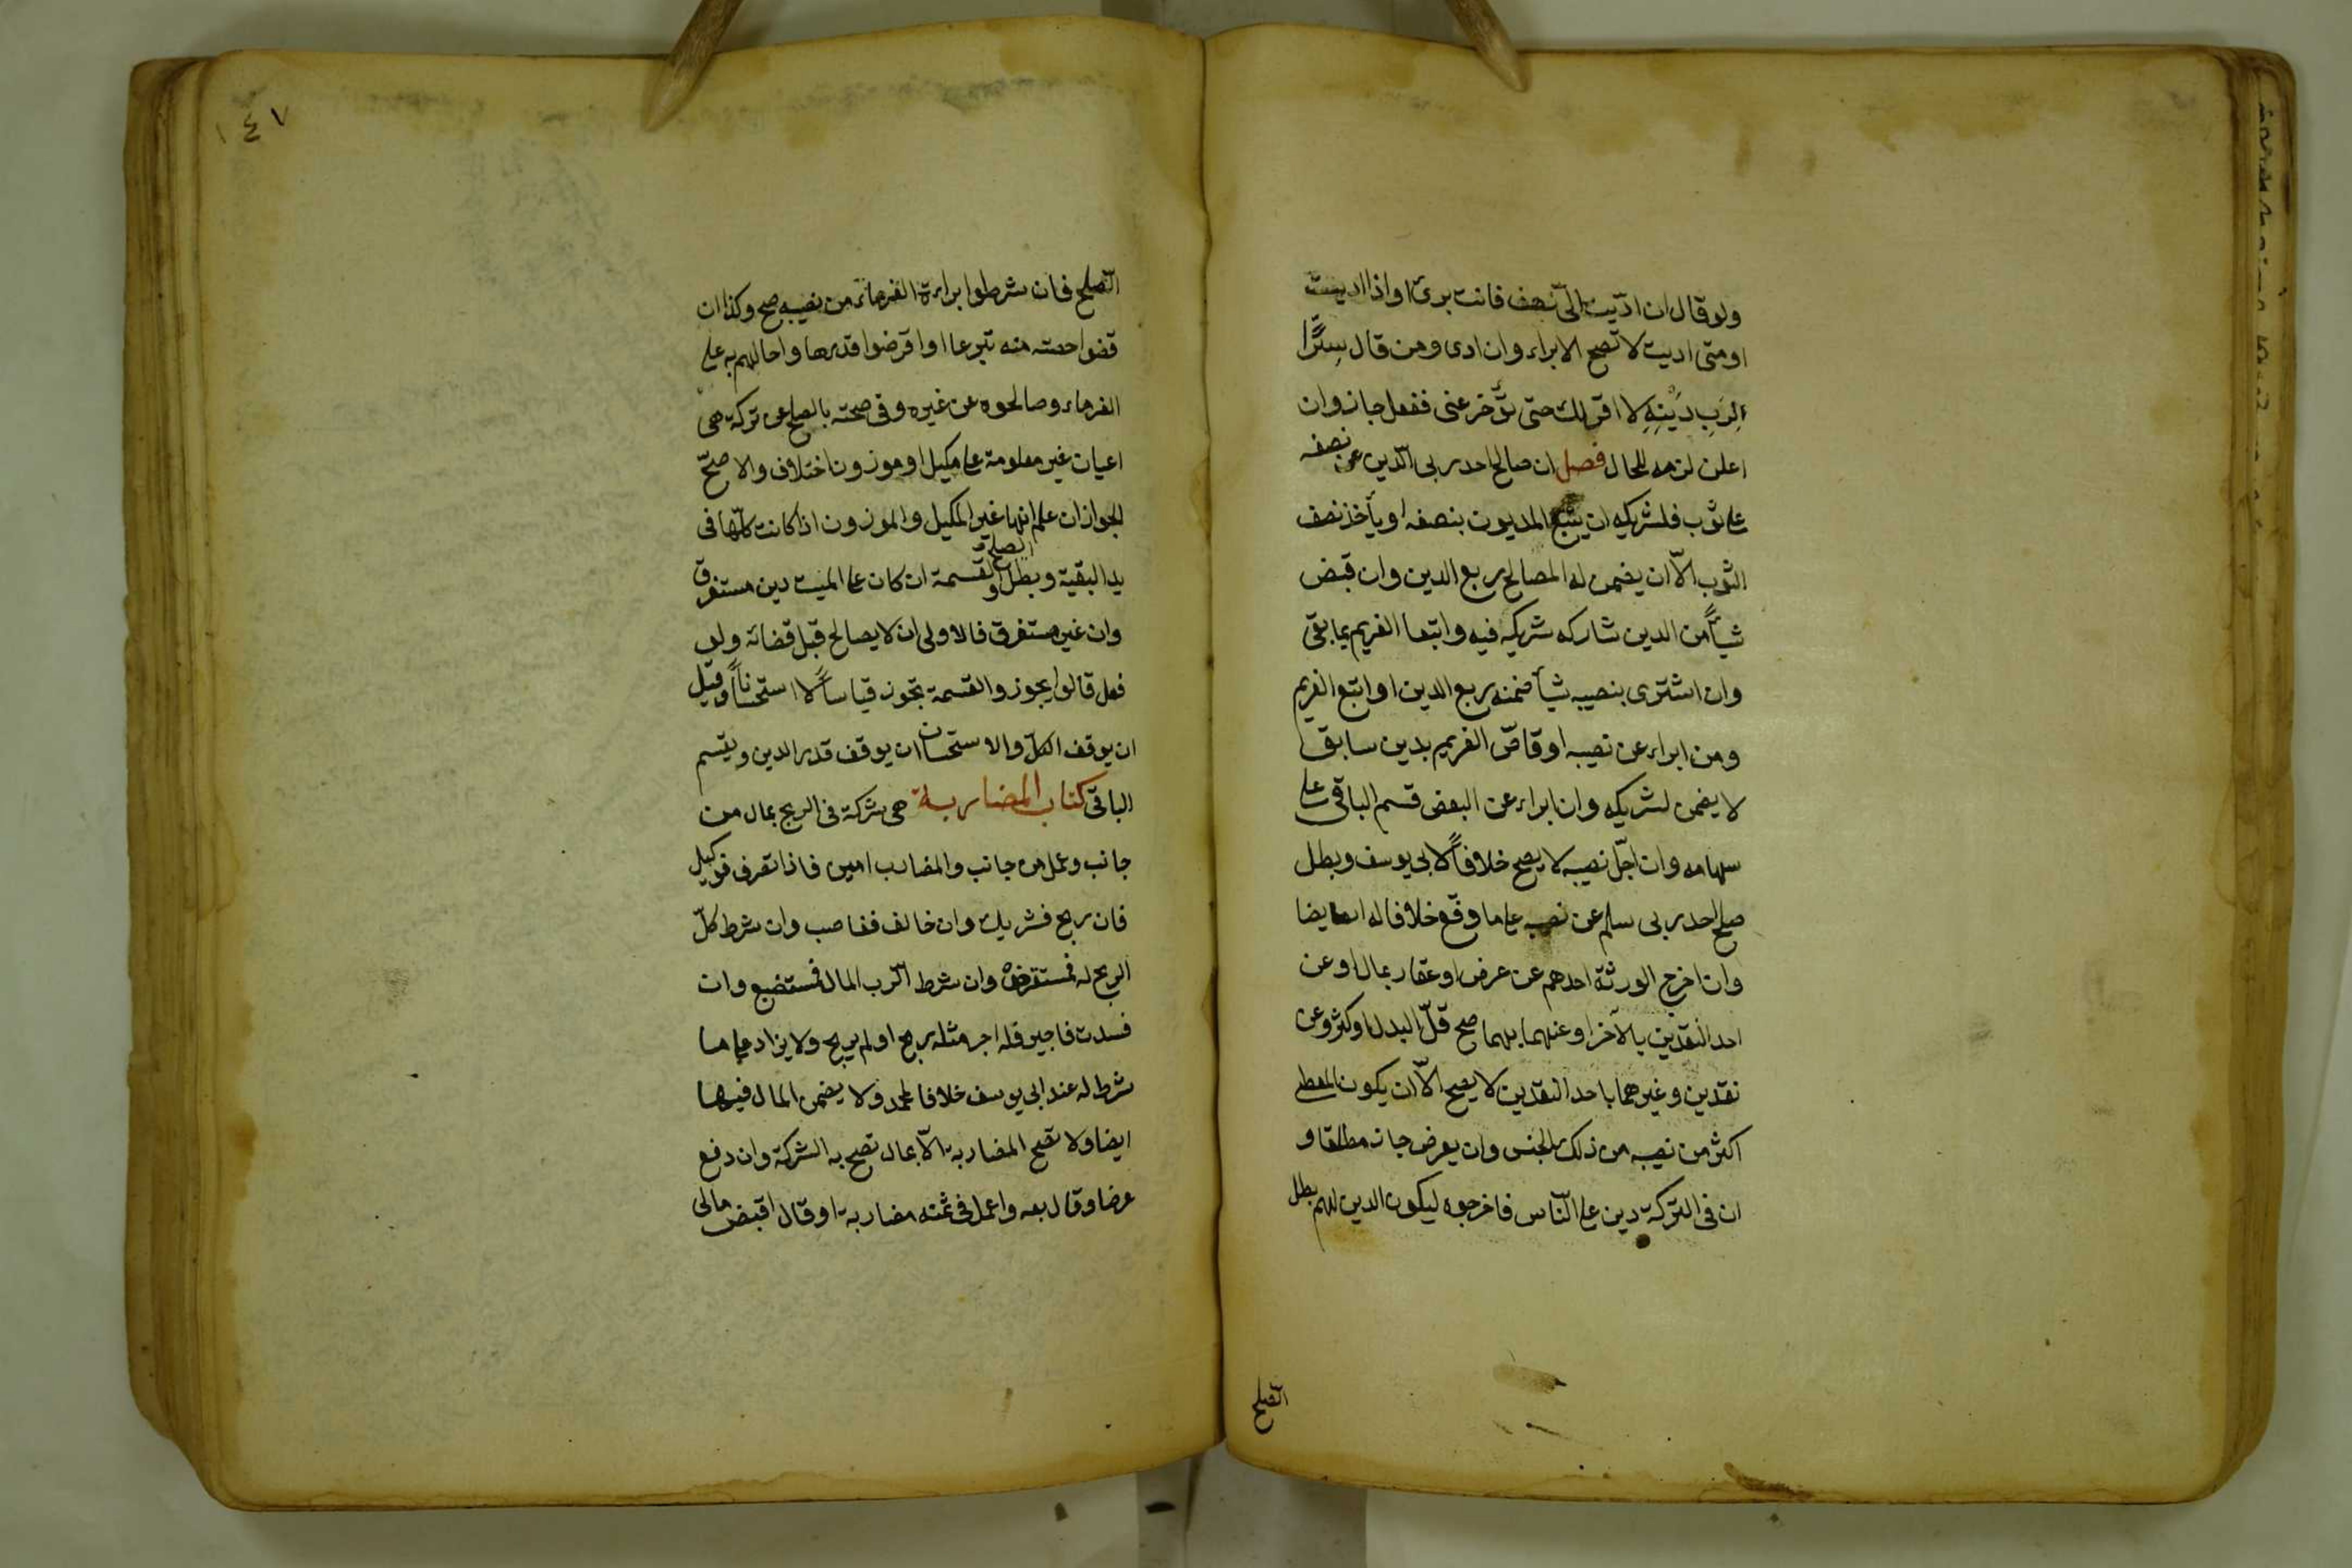 ولو قال ان ادّيت الىّ نصف فانت برئ او اذا اديت
او متى اديت لا تصح الابراء وان ادى ومن قال سِرًّا
لِرَبِ دَيْنِهِ لا اقر لك حتى تؤخر عنى ففعل جاز وان
اعلن لزمه للحال فصل ان صالح احد ربى الدّين عن نصفه
على ثوب فلشريكه ان يتبع المديون بنصفه او يأخذ نصف
الثوب الّا ان يضمن له المصالح ربع الدين وان قبض
شيأً من الدين شاركه شريكه فيه واتبعا الغريم بما بقى
وان اشترى بنصيبه شيأ ضمنه ربع الدين او اتبع الغريم
ومن ابراء عن نصيبه او قاصّ الغريم بدين سابق
لا يضمن لشريكه وان ابراء عن البعض قسم الباقى على
سهامه وان اجّل نصيبه لا يصح خلافاً لابى يوسف وبطل
صلح احد ربى سلم عن نصيبه على ما دفع خلافا له ايضا
وان اخرج الورثة احدهم عن عرض او عقار بمال او عن
احد النقدين بالآخر او عنهما بهما صح قلّ البدل او كثر وعن
نقدين وغيرهما باحد النقدين لا يصح الّا ان يكون المعطى
اكثر من نصيبه من ذلك الجنس وان بعرض جاز مطلقا و
ان فى التركة دين على النّاس فاخرجوه ليكون الدين لهم بطل
الصّلح
١٤٧
الصّلح فان شرطوا براءة الغرماء من نصيبه صح وكذا ان
قضوا حصته منه تبرعا او اقرضوا قدرها واحالهم به على
الغرماء وصالحوه عن غيره وفى صحته بالصلح عن تركة هى
اعيان غير معلومة على مكيل او موزون اختلاف والاصحّ
الجواز ان علم انها غير المكيل والموزون اذا كانت كلّها فى
يد البقية وبطل الصلح والقسمة ان كان على الميت دين مستغرق
وان غير مستغرق فالاولى ان لا يصالح قبل قضائه ولو
فعل قالوا يجوز والقسمة تجوز قياساً لا استحساناً وقيل
ان يوقف الكلّ والاستحسان ان يوقف قدر الدين ويقسم
الباقى كتاب المضاربة هى شركة فى الربح بمال من
جانب وعمل من جانب والمضارب امين فاذا تصرف فوكيل
فان ربح فشريك وان خالف فغاصب وان شرط كلّ
الربح له فمستقرض وان شرط لرّب المال فمستبضع وان
فسدت فاجير فله اجر مثله ربح او لم يربح ولا يزاد على ما
شرط له عند ابى يوسف خلافا لمحمد ولا يضمن المال فيها
ايضا ولا تصح المضاربة الّا بمال تصح به الشركة وان دفع
عرضا وقال بعه واعمل فى ثمنه مضاربة او قال اقبض مالى